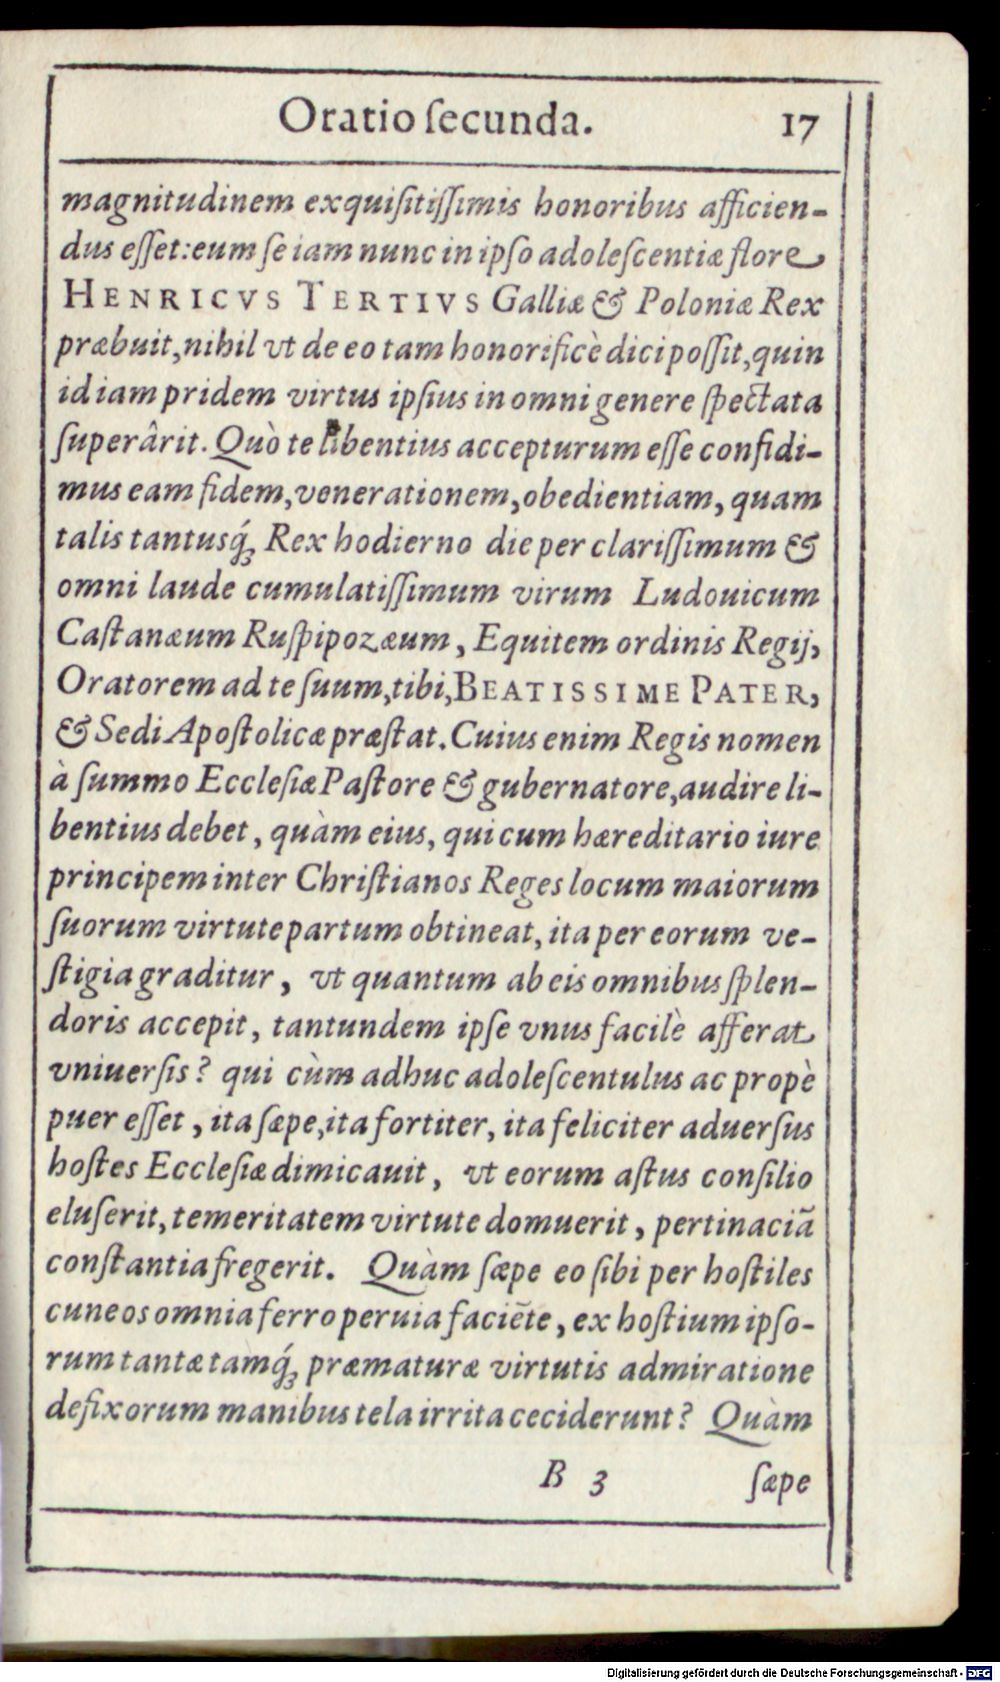 Oratio ſecunda. 17
magnitudinem exquiſitiſſimis honoribus afficien-
dus eſſet: eum ſe iam nunc in ipſo adoleſcentiæ flore
HENRICVS TERTIVS Galliæ & Poloniæ Rex
præbuit, nihil vt de eo tam honorificè dici poſſit, quin
id iam pridem virtus ipſius in omni genere ſpectata
ſuperârit. Quò te libentius accepturum eſſe confidi-
mus eam fidem, venerationem, obedientiam, quam
talis tantusq́; Rex hodierno die per clariſſimum &
omni laude cumulatiſſimum virum Ludouicum
Caſtanæum Ruſpipozæum, Equitem ordinis Regij,
Oratorem ad te ſuum, tibi, BEATISSIME PATER,
& Sedi Apoſtolicæ præſtat. Cuius enim Regis nomen
à ſummo Eccleſiæ Paſtore & gubernatore, audire li-
bentius debet, quàm eius, qui cum hæreditario iure
principem inter Chriſtianos Reges locum maiorum
ſuorum virtute partum obtineat, ita per eorum ve-
ſtigia graditur, vt quantum ab eis omnibus ſplen-
doris accepit, tantundem ipſe vnus facilè afferat
vniuerſis? qui cùm adhuc adoleſcentulus ac propè
puer eſſet, ita ſæpe, ita fortiter, ita feliciter aduerſus
hoſtes Eccleſiæ dimicauit, vt eorum aſtus conſilio
eluſerit, temeritatem virtute domuerit, pertinaciā
conſtantia fregerit. Quàm ſæpe eo ſibi per hoſtiles
cuneos omnia ferro peruia faciēte, ex hoſtium ipſo-
rum tantæ tamq́; præmaturæ virtutis admiratione
defixorum manibus tela irrita ceciderunt? Quàm
B 3 ſæpe
Digitalisierung gefördert durch die Deutsche Forschungsgemeinschaft - DFG